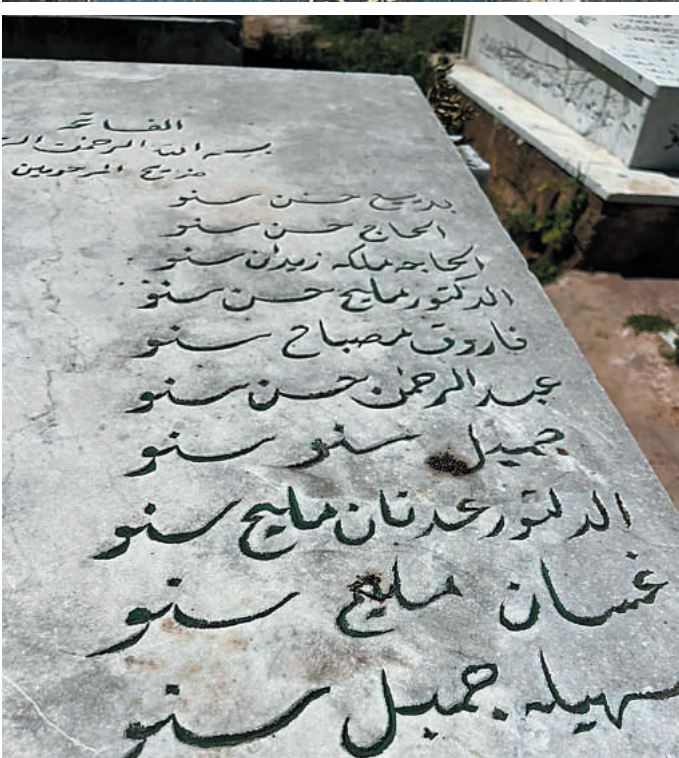 الفاتحة
بسم الله الرحمن
ضريح المرحومين
بديع حسن سنو
الحاج حسن سنو
الحاجه ملكه زيدان سنو
الدكتور مليح حسن سنو
فاروق مصباح سنو
عبدالرحمن حسن سنو
جميل سنو سنو
الدكتور عدنان مليح سنو
غسان مليح سنو
سهيله جميل سنو